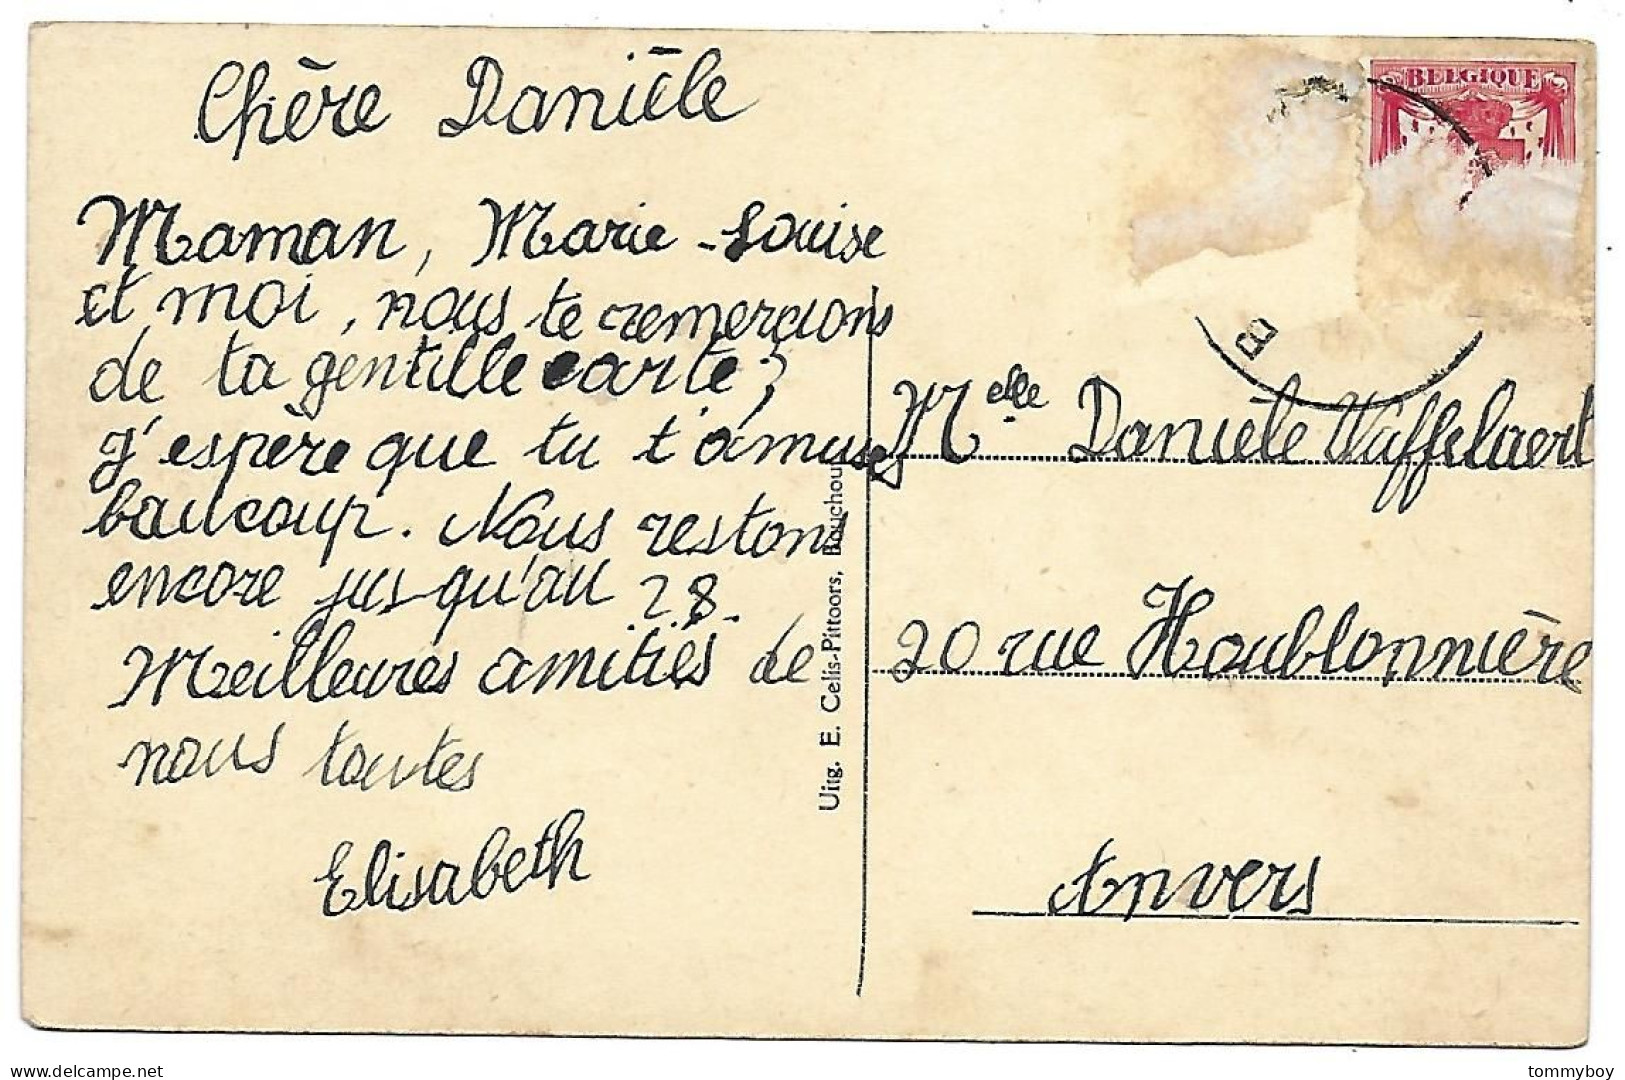 Chère Danièle
Maman, Marie-Louise
et moi, nous te remercions
de ta gentille carte;
J'espère que tu t'amuses
baucoup. Nous restons
encore jusqu'au 28.
Meilleures amitiés de
nous toutes
Elisabeth
Uitg. E. Celis-Pittoors, Bouchout
BELGIQUE
B
Melle Danièle Wuffelaert
20 rue Houblonnière
Anvers
tommyboy